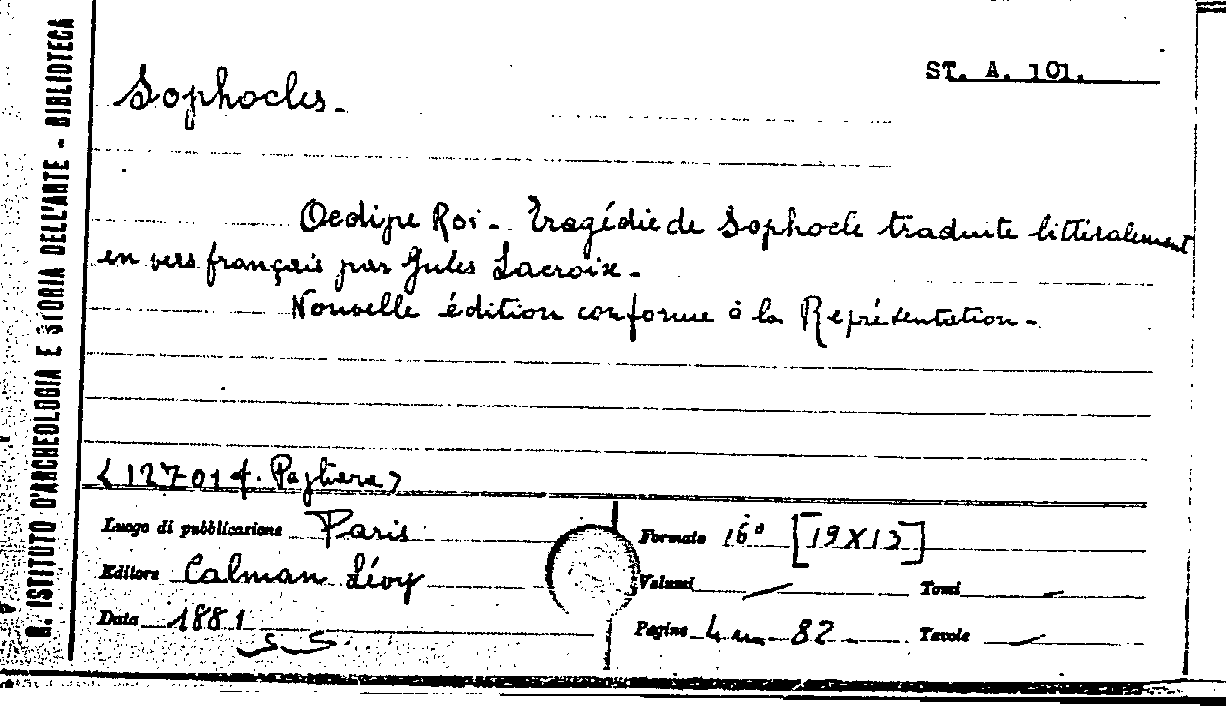 R. ISTITUTO D'ARCHEOLOGIA E STORIA DELL'ARTE - BIBLIOTECA
ST. A. 101.
Sophocles.
Oedipe Roi. Tragédie de Sophocle traduite littéralement
en vers français par Jules Lacroix.
Nouvelle édition conforme à la Représentation.
<12701 f. Pagliara>
Luogo di pubblicazione Paris
Editore Calman Lévy
Data 1881
Formato 16° [19X13]
Volumi — Tomi —
Pagine 4 82 Tavole —